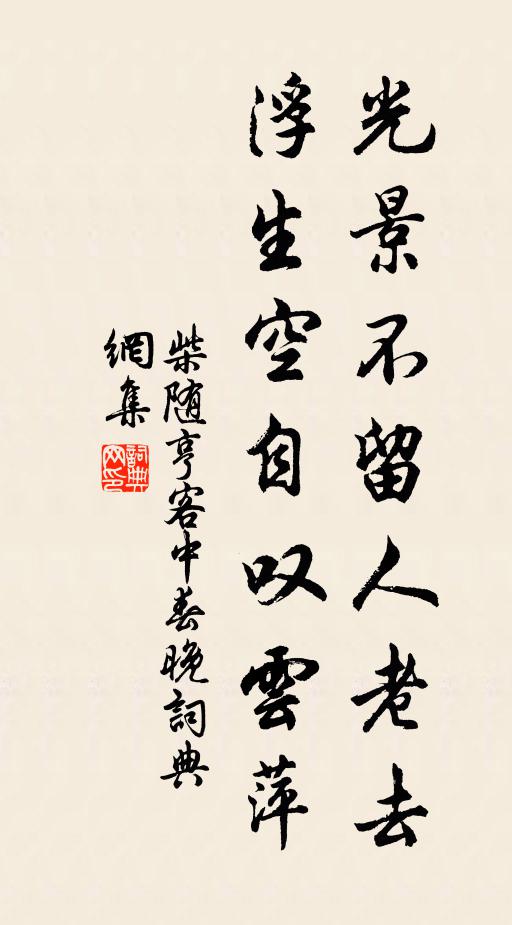 光景不留人老去
浮生空自叹雲萍
柴随亨客中春晚詞典
網集
詞典网印